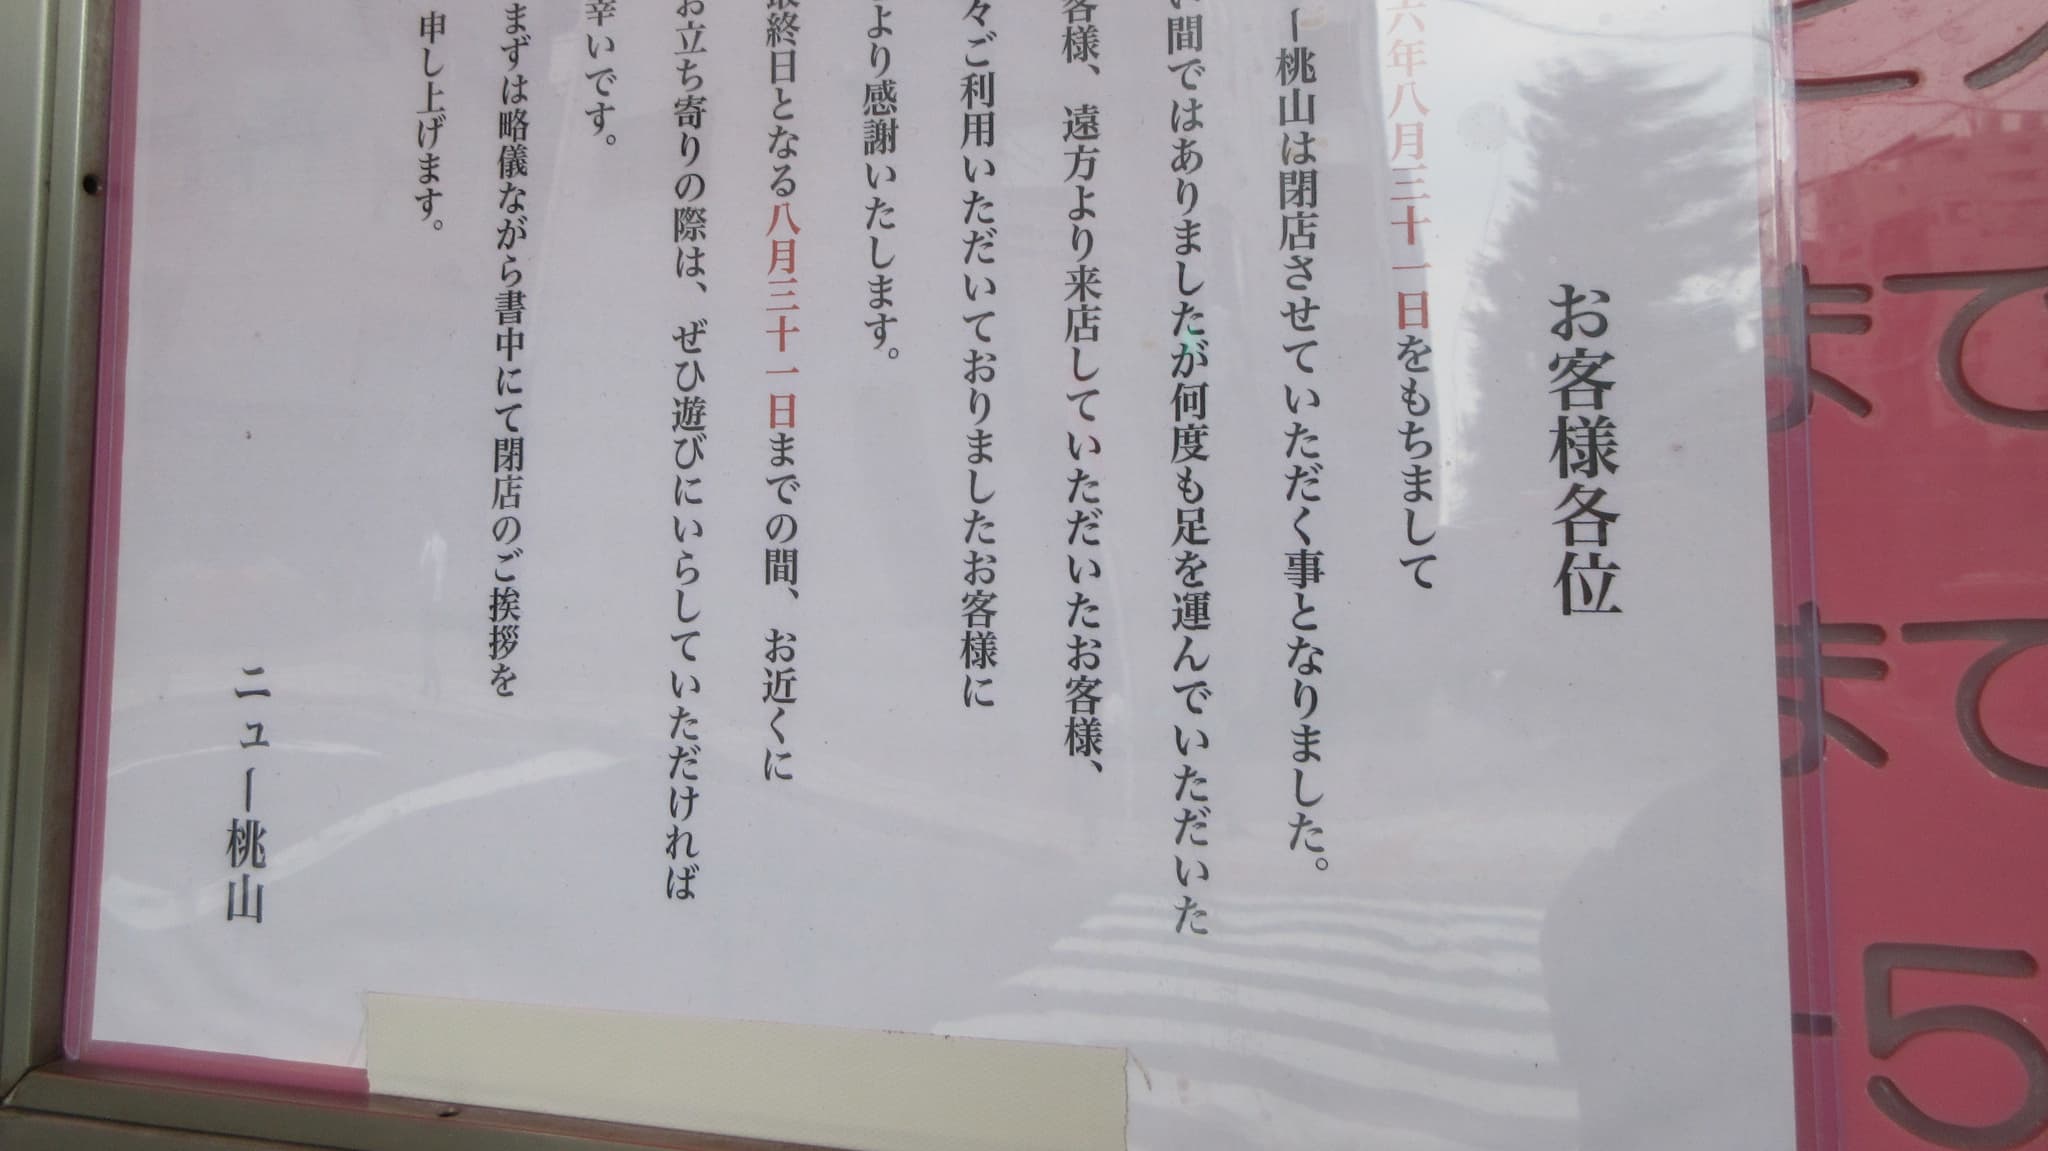 お客様各位
六年八月三十一日をもちまして
ー桃山は閉店させていただく事となりました。
い間ではありましたが何度も足を運んでいただいた
客様、遠方より来店していただいたお客様、
々ご利用いただいておりましたお客様に
より感謝いたします。
最終日となる八月三十一日までの間、お近くに
お立ち寄りの際は、ぜひ遊びにいらしていただければ
幸いです。
まずは略儀ながら書中にて閉店のご挨拶を
申し上げます。
ニュー桃山